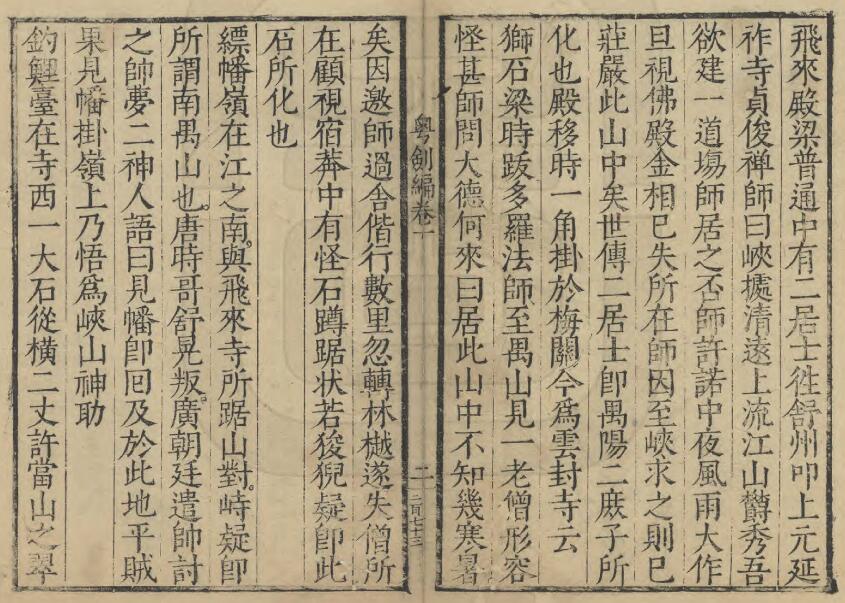 飛來殿梁普通中有二居士徃舒州叩上元延
祚寺貞俊禅師曰峽㨿清遠上流江山欝秀吾
欲建一道塲師居之否師許諾中夜風雨大作
旦視佛殿金相已失所在師因至峽求之則已
莊嚴此山中矣世傳二居士卽禺陽二庶子所
化也殿移時一角掛於梅關今爲雲封寺云
獅石梁時跋多羅法師至禺山見一老僧形容
怪甚師問大德何來曰居此山中不知幾寒暑
粤劍編卷一
二
二百七十三
矣因邀師過舍偕行數里忽轉林樾遂失僧所
在顧視宿莽中有怪石蹲踞状若狻猊疑卽此
石所化也
縹幡嶺在江之南與飛來寺所踞山對峙疑卽
所謂南禺山也唐時哥舒晃叛廣朝廷遣帥討
之帥夢二神人語曰見幡卽囘及於此地平賊
果見幡掛嶺上乃悟爲峽山神助
釣鯉臺在寺西一大石從橫二丈許當山之翠